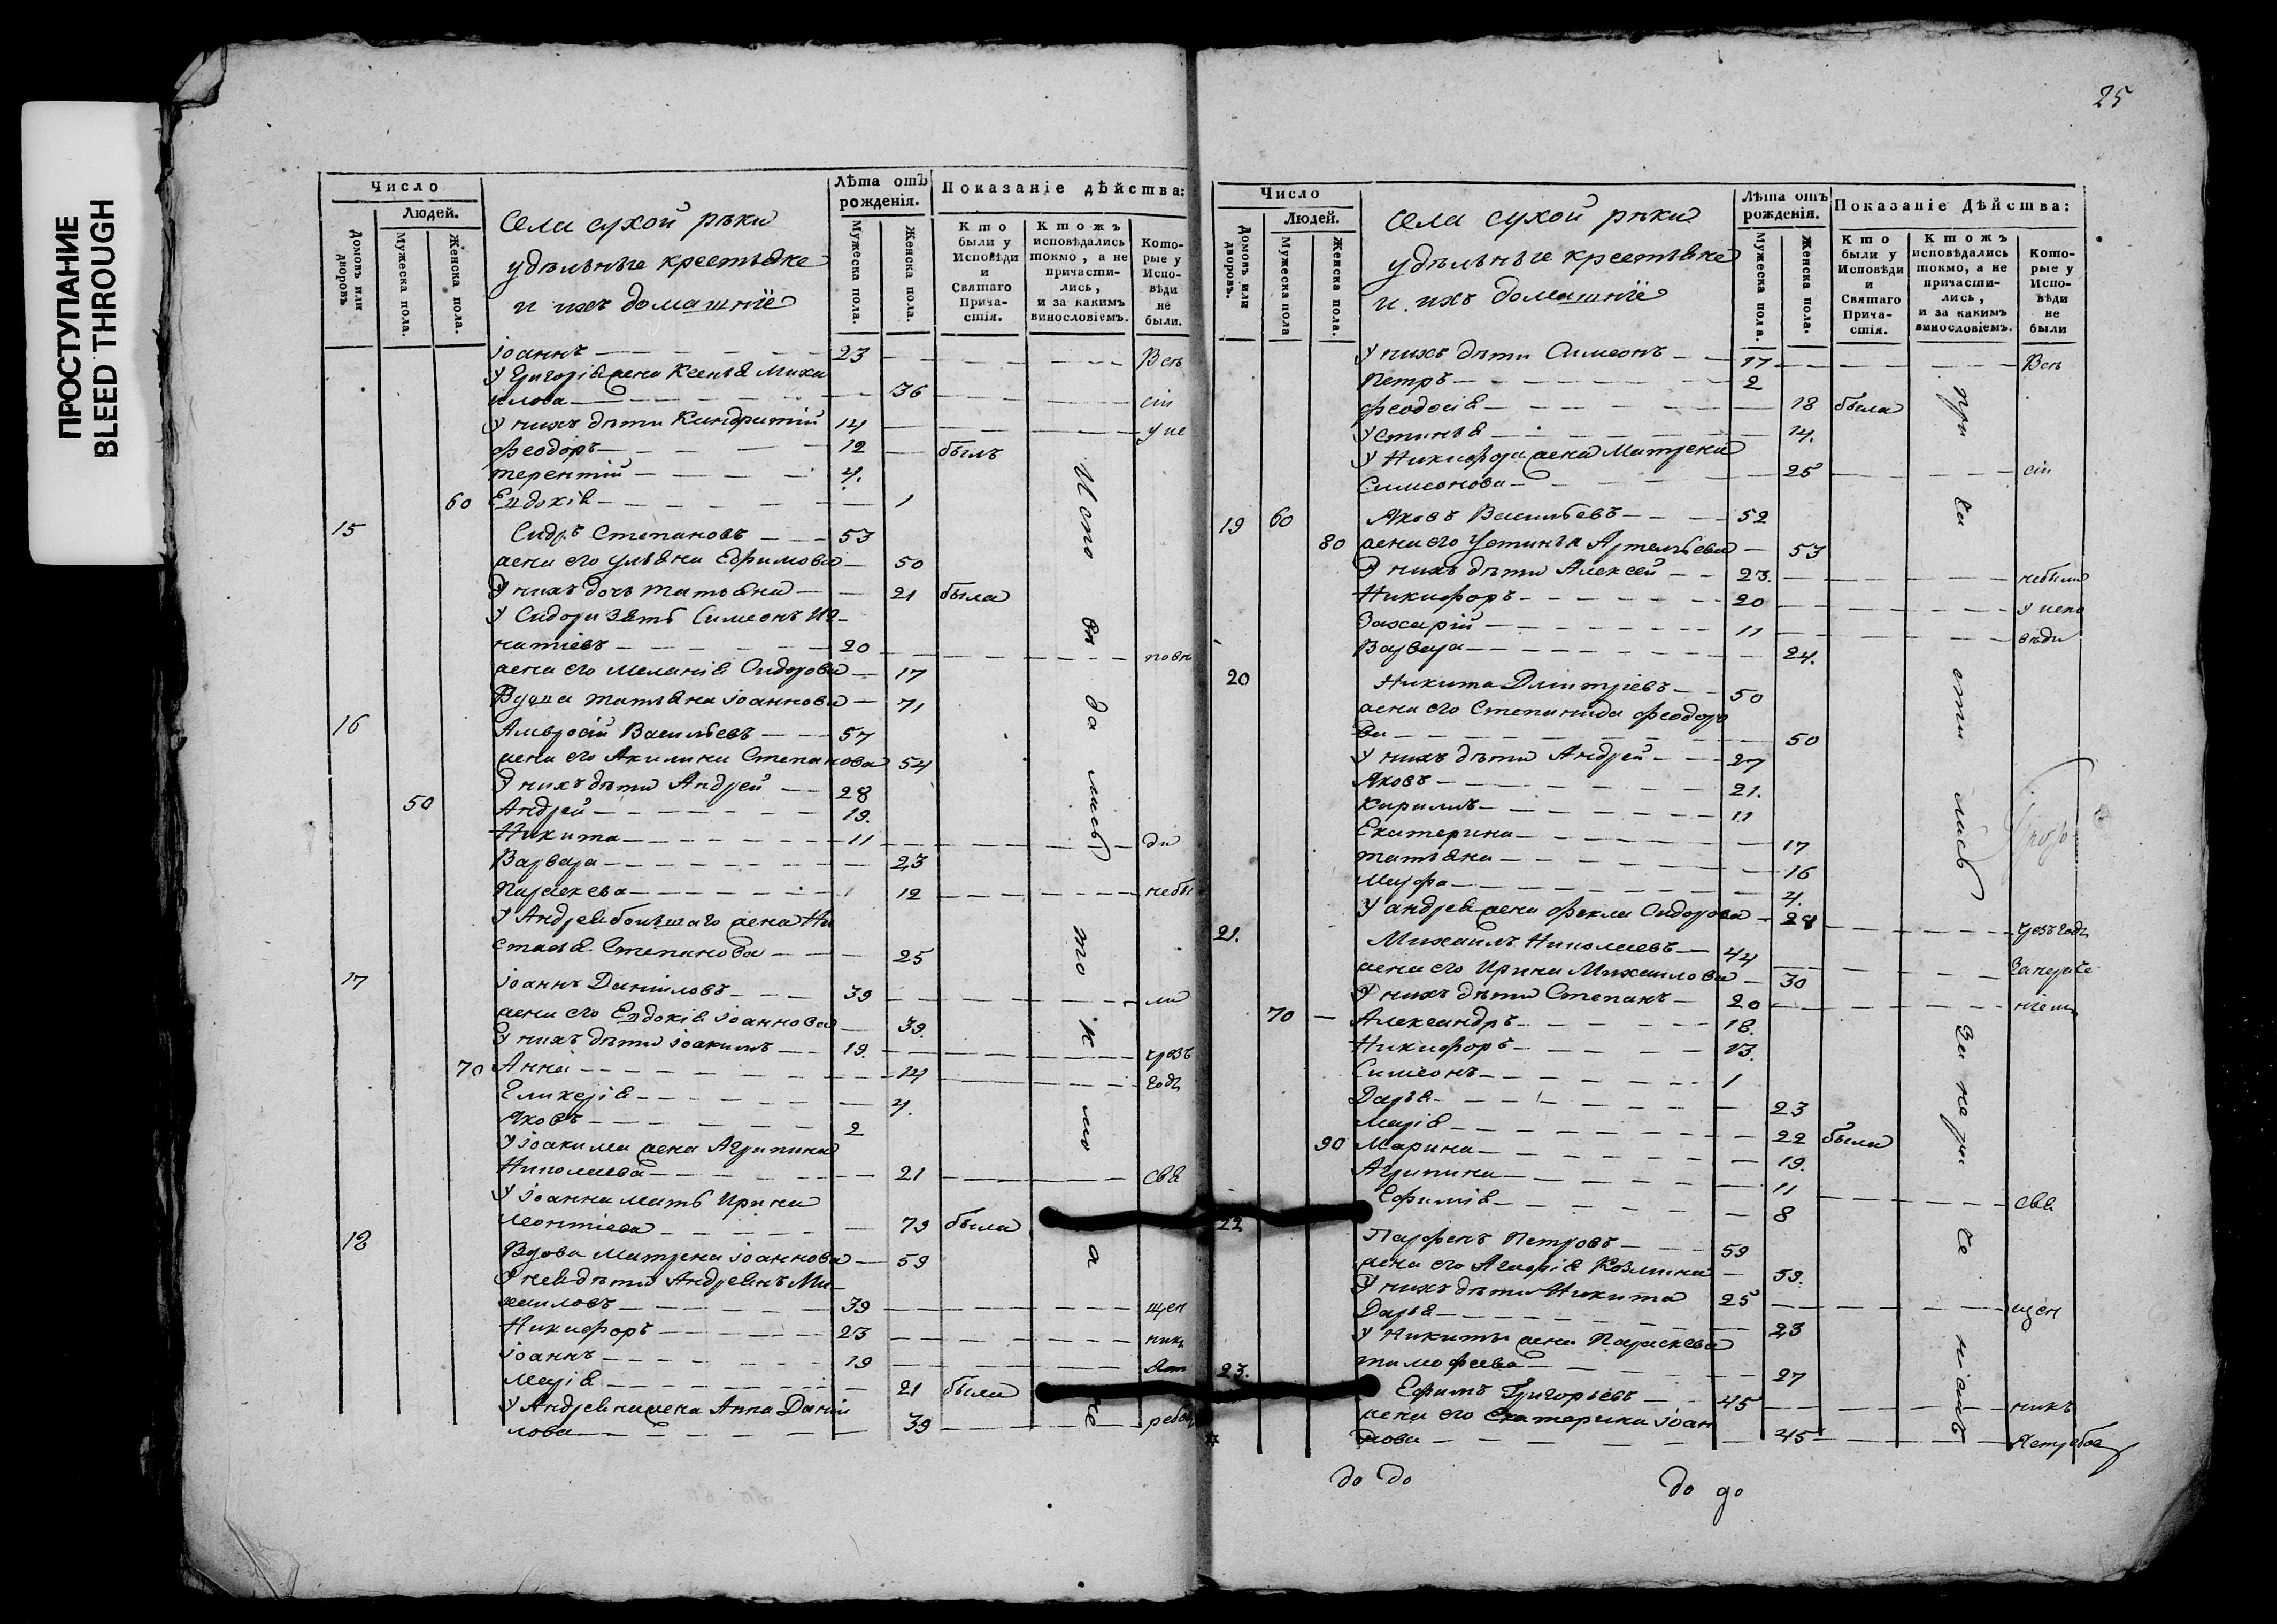 ПРОСТУПАНИЕ
BLEED THROUGH
25
Число
Людей.
Домовъ или дворовъ.
Мужеска пола.
Женска пола.
Села сухой рѣки
удѣльныя крестьяне
и ихъ домашніе
Лѣта отъ рожденія.
Мужеска пола.
Женска пола.
Показаніе дѣйства:
Кто были у Исповѣди и Святаго Причастія.
Ктожъ исповѣдались токмо, а не причастились, и за какимъ винословіемъ.
Которые у Исповѣди не были.
Іоаннъ 23 Всѣ
У Григорія жена Ксенья Миха
илова 36 сіи
У нихъ дѣти Киндратій 14 у ис
Феодоръ 12 былъ
Терентій 4.
60 Евдокія 1
15 Сидръ Степановъ 53
жена его Ульяна Ефимова 50
У нихъ дочь Татьяна 21 была
У Сидора зять Симеонъ Иг
натіевъ 20 повѣ
жена его Меланія Сидорова 17
Вдова Татьяна Іоаннова 71
16 Амвросій Васильевъ 57
жена его Акилина Степанова 54
У нихъ дѣти Андрей 28
50 Андрей 19.
Никита 11 ди
Варвара 23
Параскева 12 небы
У Андрея большаго жена На
стасья Степанова 25
17 Іоаннъ Даніиловъ 39 ли
жена его Евдокія Іоаннова 39.
У нихъ дѣти Іоакимъ 19. чрезъ
70 Анна 14 годъ
Гликерія 4.
Яковъ 2
У Іоакима жена Агрипина
Николаева 21 свя
У Іоанна мать Ирина
Леонтіева 79 была
18 Вдова Матрена Іоаннова 59
У ней дѣти Андреянъ Ми
хаиловъ 39 щен
Никифоръ 23 никъ
Іоаннъ 19
Марія 21 была
У Андреяна жена Анна Даніи
лова 39
Испо вѣ да лись то к мо а не
Число
Людей.
Домовъ или дворовъ.
Мужеска пола
Женска пола.
Села сухой рѣки
удѣльныя крестьяне
и ихъ домашніе
Лѣта отъ рожденія.
Мужеска пола.
Женска пола.
Показаніе Дѣйства:
Кто были у Исповѣди и Святаго Причастія.
Ктожъ исповѣдались токмо, а не причастились, и за какимъ винословіемъ.
Которые у Исповѣди не были
У нихъ дѣти Симеонъ 17 Всѣ
Петръ 2
Феодосія 18 была
Устинья 14.
У Никифора жена Матрена
Симеонова 25 сіи
19 60 Яковъ Васильевъ 52
80 жена его Устинья Артемьева 53
У нихъ дѣти Алексей 23. небыли
Никифоръ 20 у испо
Захарій 11 вѣди
Варвара 24.
20 Никита Дмитріевъ 50
жена его Степанида Феодоро
ва 50
У нихъ дѣти Андрей 27
Яковъ 21.
Кирилъ 11
Екатерина 17
Татьяна 16
Марфа 4.
У Андрея жена Фекла Сидорова 28 чрезъ годъ
21. Михаилъ Николаевъ 44
жена его Ирина Михаилова 30
У нихъ дѣти Степанъ 20
70 Александръ 18.
Никифоръ 13.
Симеонъ 1
Дарья 23
Марія 22 была
90 Марина 19.
Агрипина 11
Ефимія 8 свя
22 Парфенъ Петровъ 59
жена его Агафія Козмина 59.
У нихъ дѣти Никита 25 щен
Дарья 23
У Никиты жена Параскева
Тимофеева 27
23. Ефимъ Григорьевъ 45 никъ
жена его Екатерина Іоан
нова 45
при ча сти лись за нера че ніемъ
до до до до